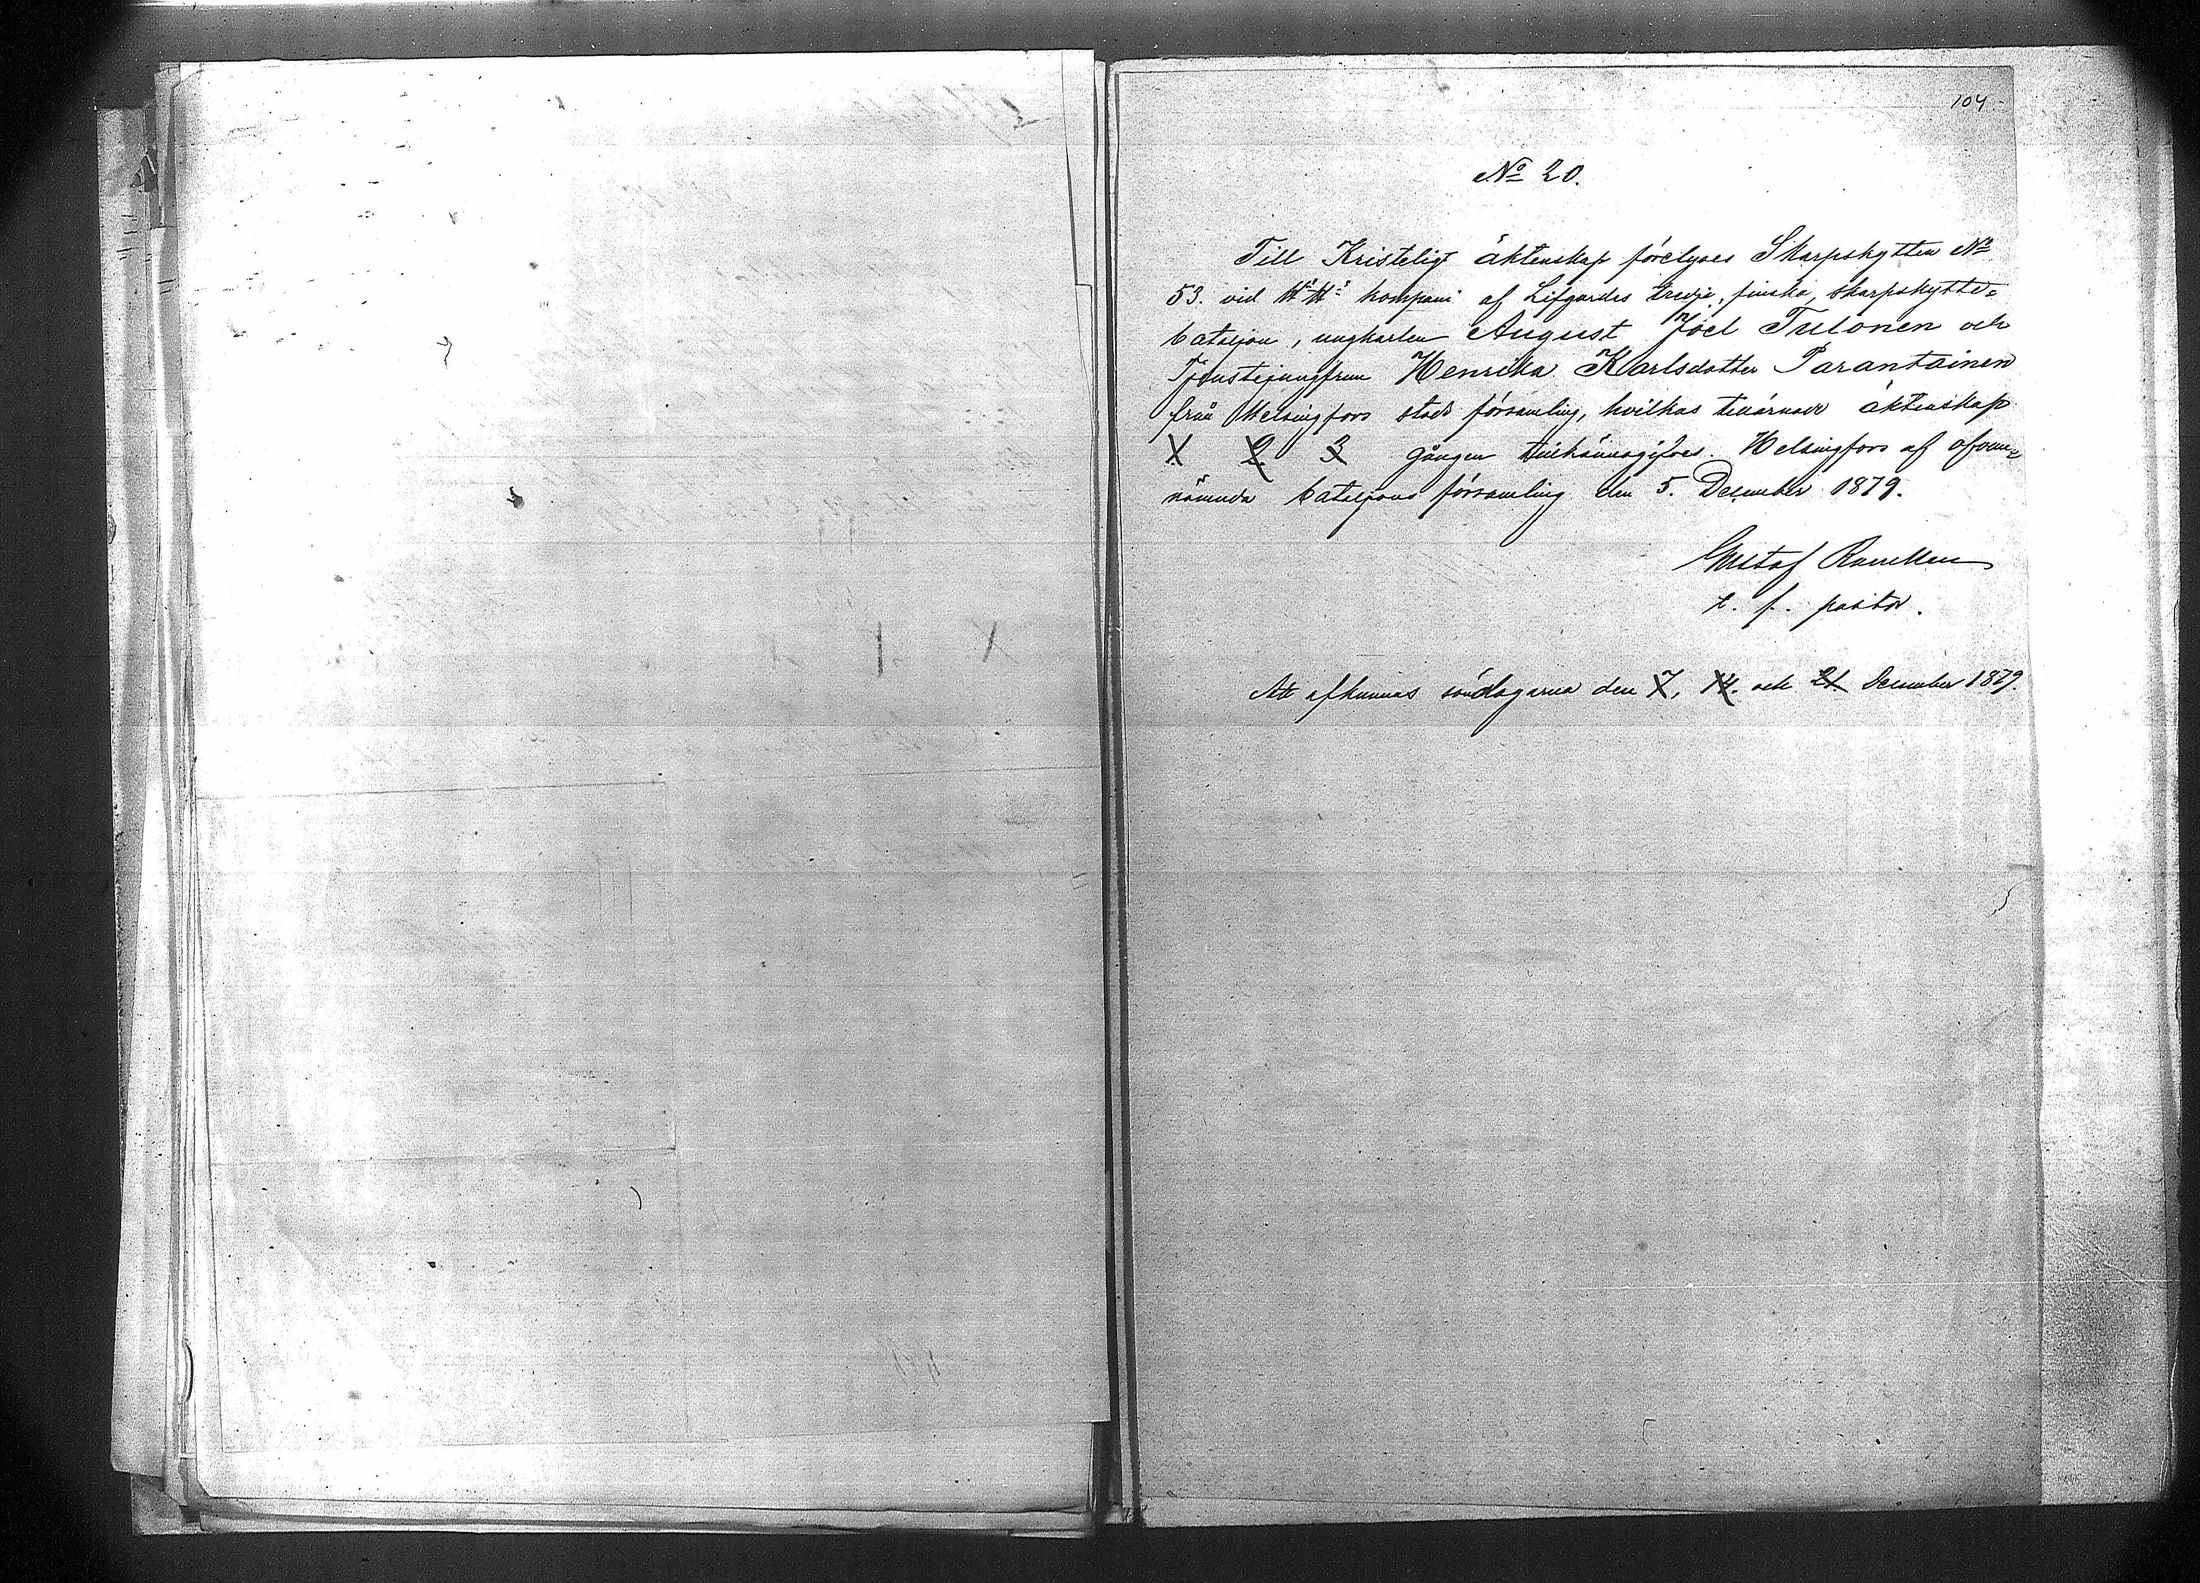 104
No 20.
Till Kristeligt äktenskap förelyses Skarpskytten No
53. vid kompani af Lifgardes tredje, finska, skarpskytte=
bataljon, ungkarlen August Joel Tulonen och
Tjenstejungfrun Henrika Karlsdotter Parantainen
från Helsingfors stads församling, hvilkas tillärnade äktenskap
1. 2. 3 gången tillkännagifves. Helsingfors af ofvan=
nämnda bataljons församling den 5. December 1879.
Gustaf
t. f. pastor.
Att afkunnas söndagarna den 7, 14. och 21. December 1879.